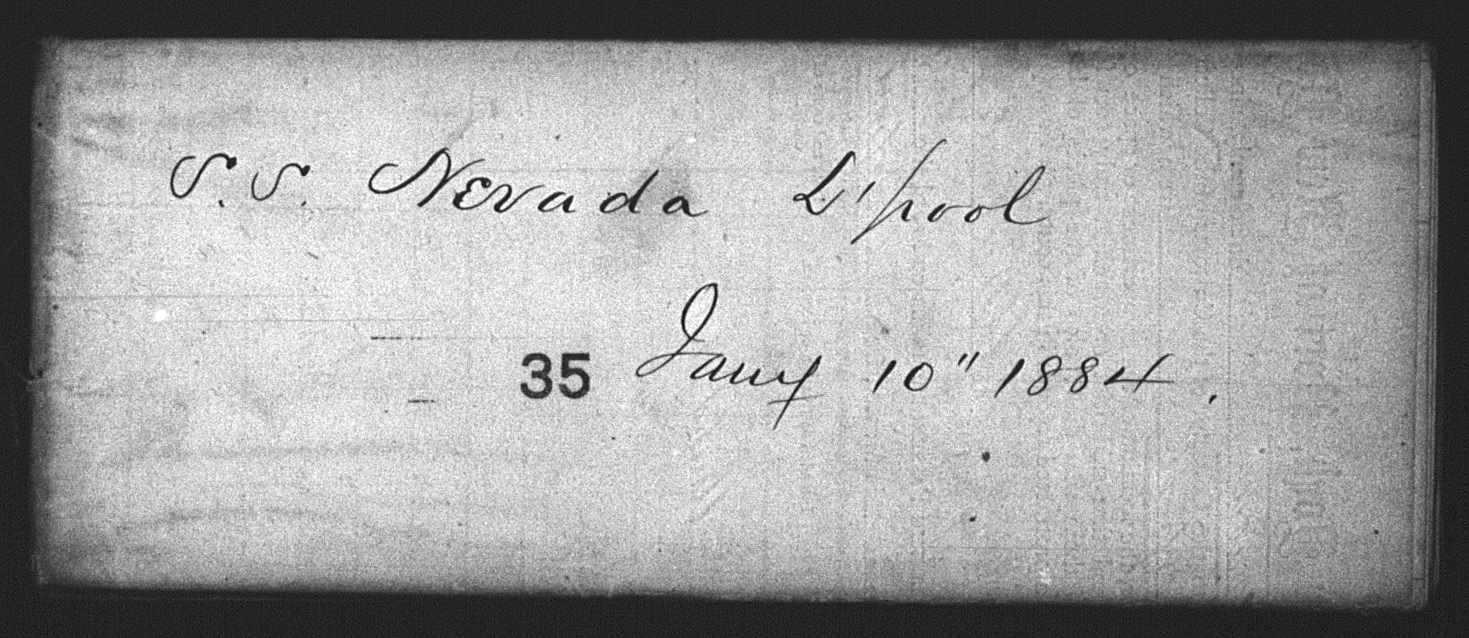 S.S. Nevada L'pool
35 Jany 10" 1884.